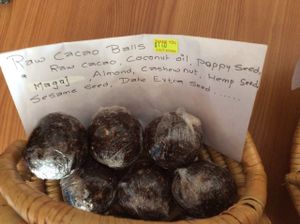 Raw Cacao Balls
Raw Cacao, Coconut oil, Poppy Seed,
Magaj, Almond, Cashewnut, Hemp Seed,
Sesame Seed, Date Extra Seed......